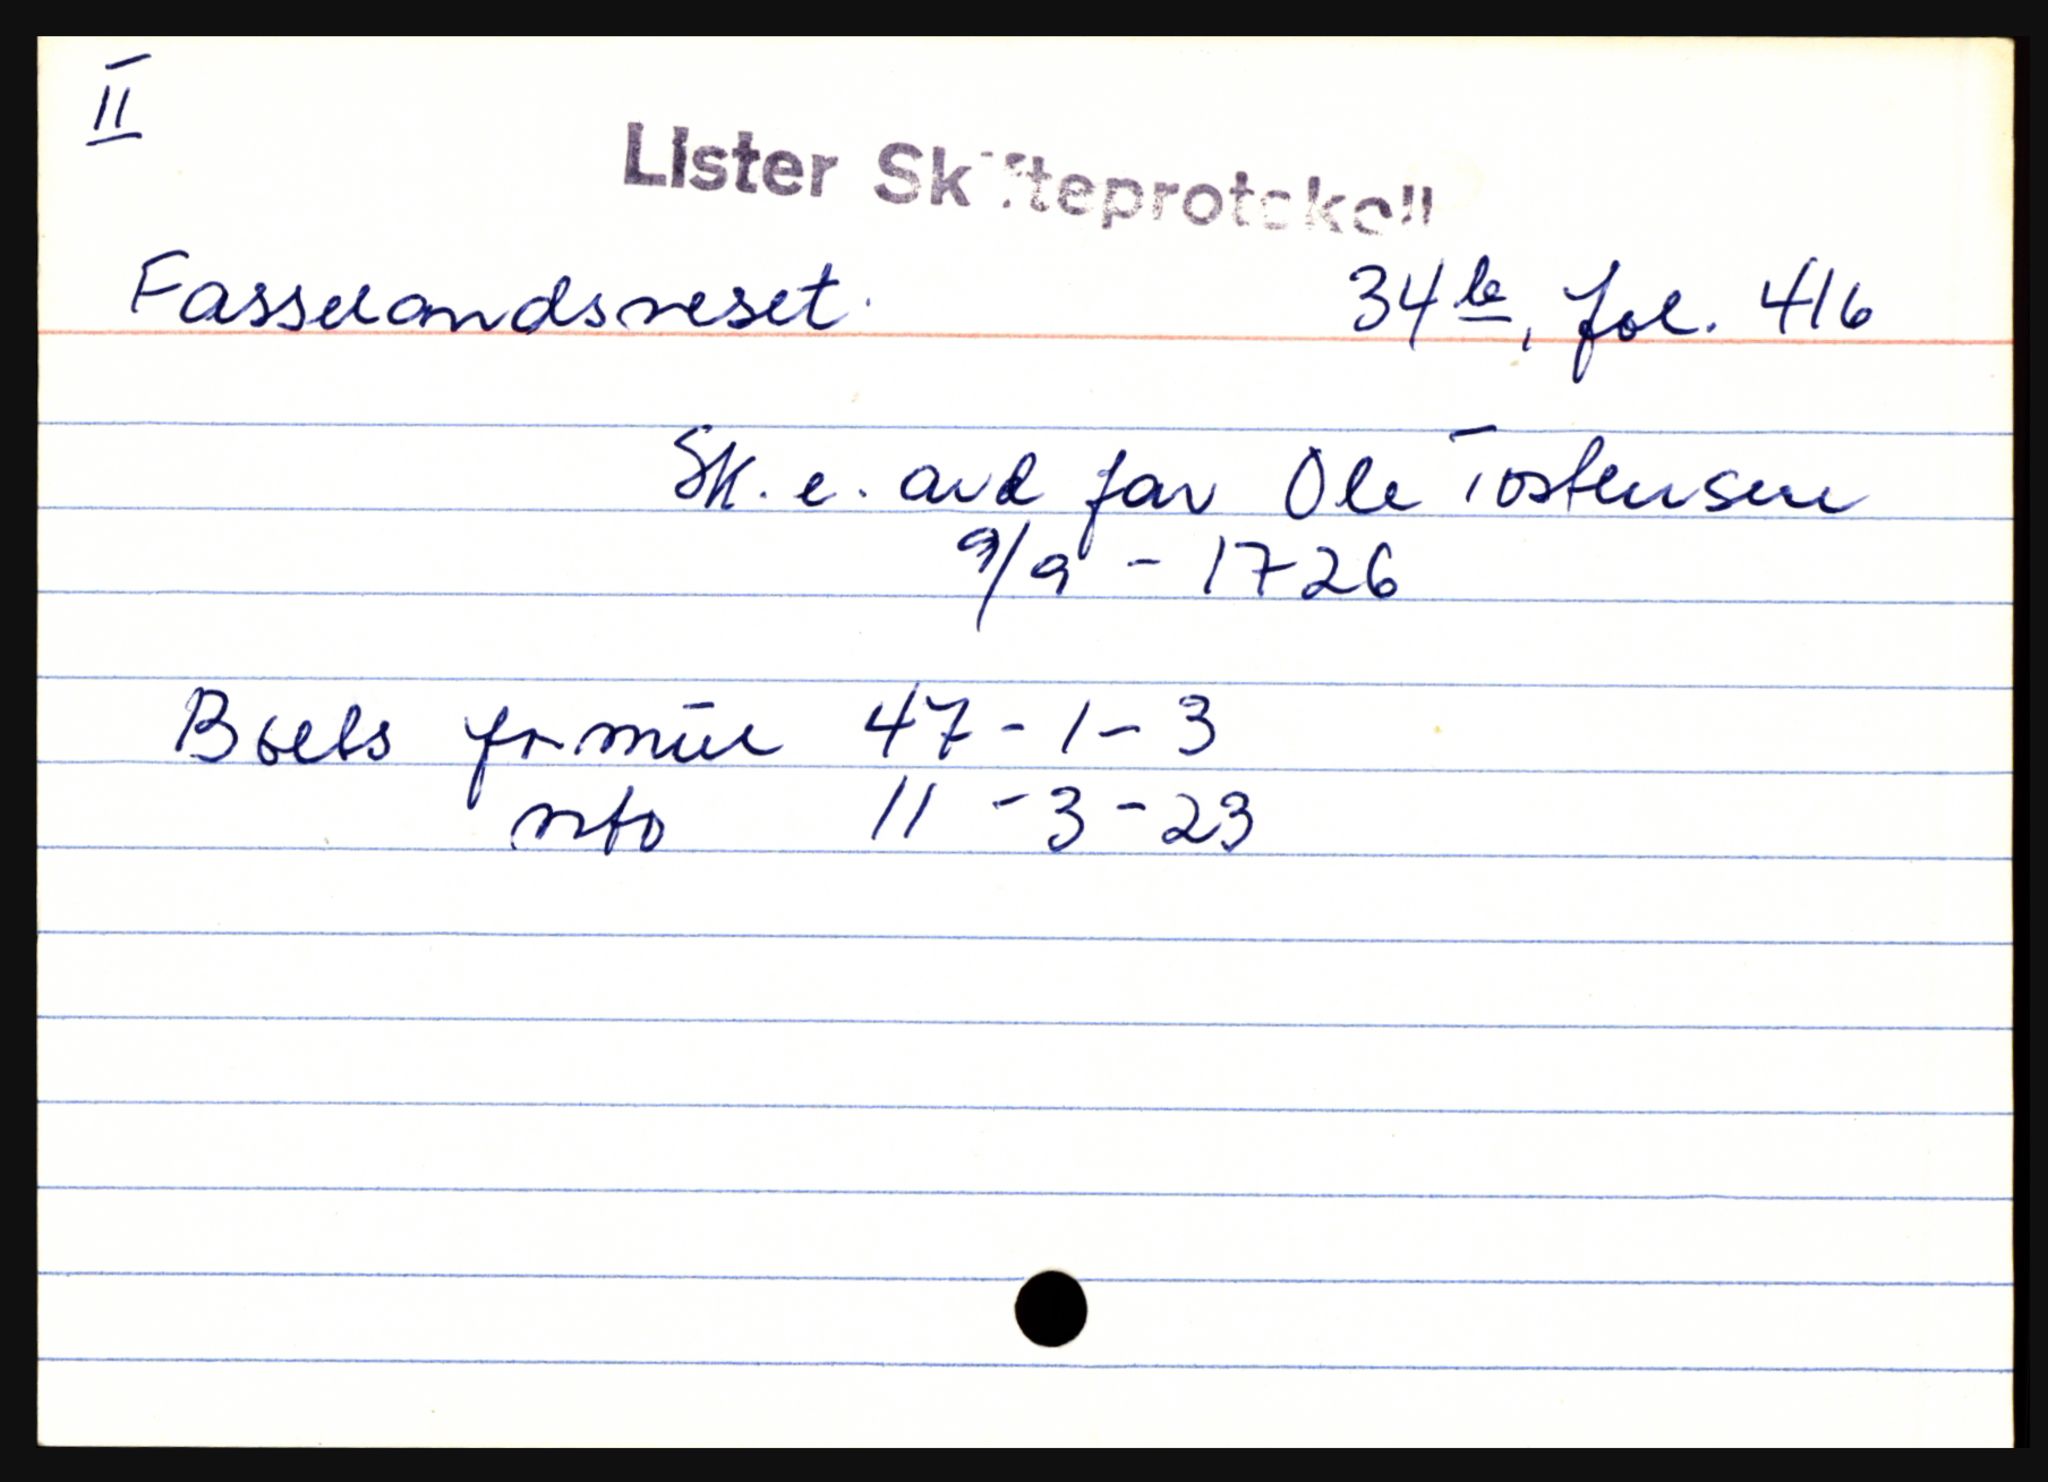 II
Lister Skifteprotokoll
Fasselandsneset. 34 b, fol. 416
Sk. e. avd far Ole Tostensen
9/9 - 1726
Boets formue 47 - 1 - 3
nto 11 - 3 - 23